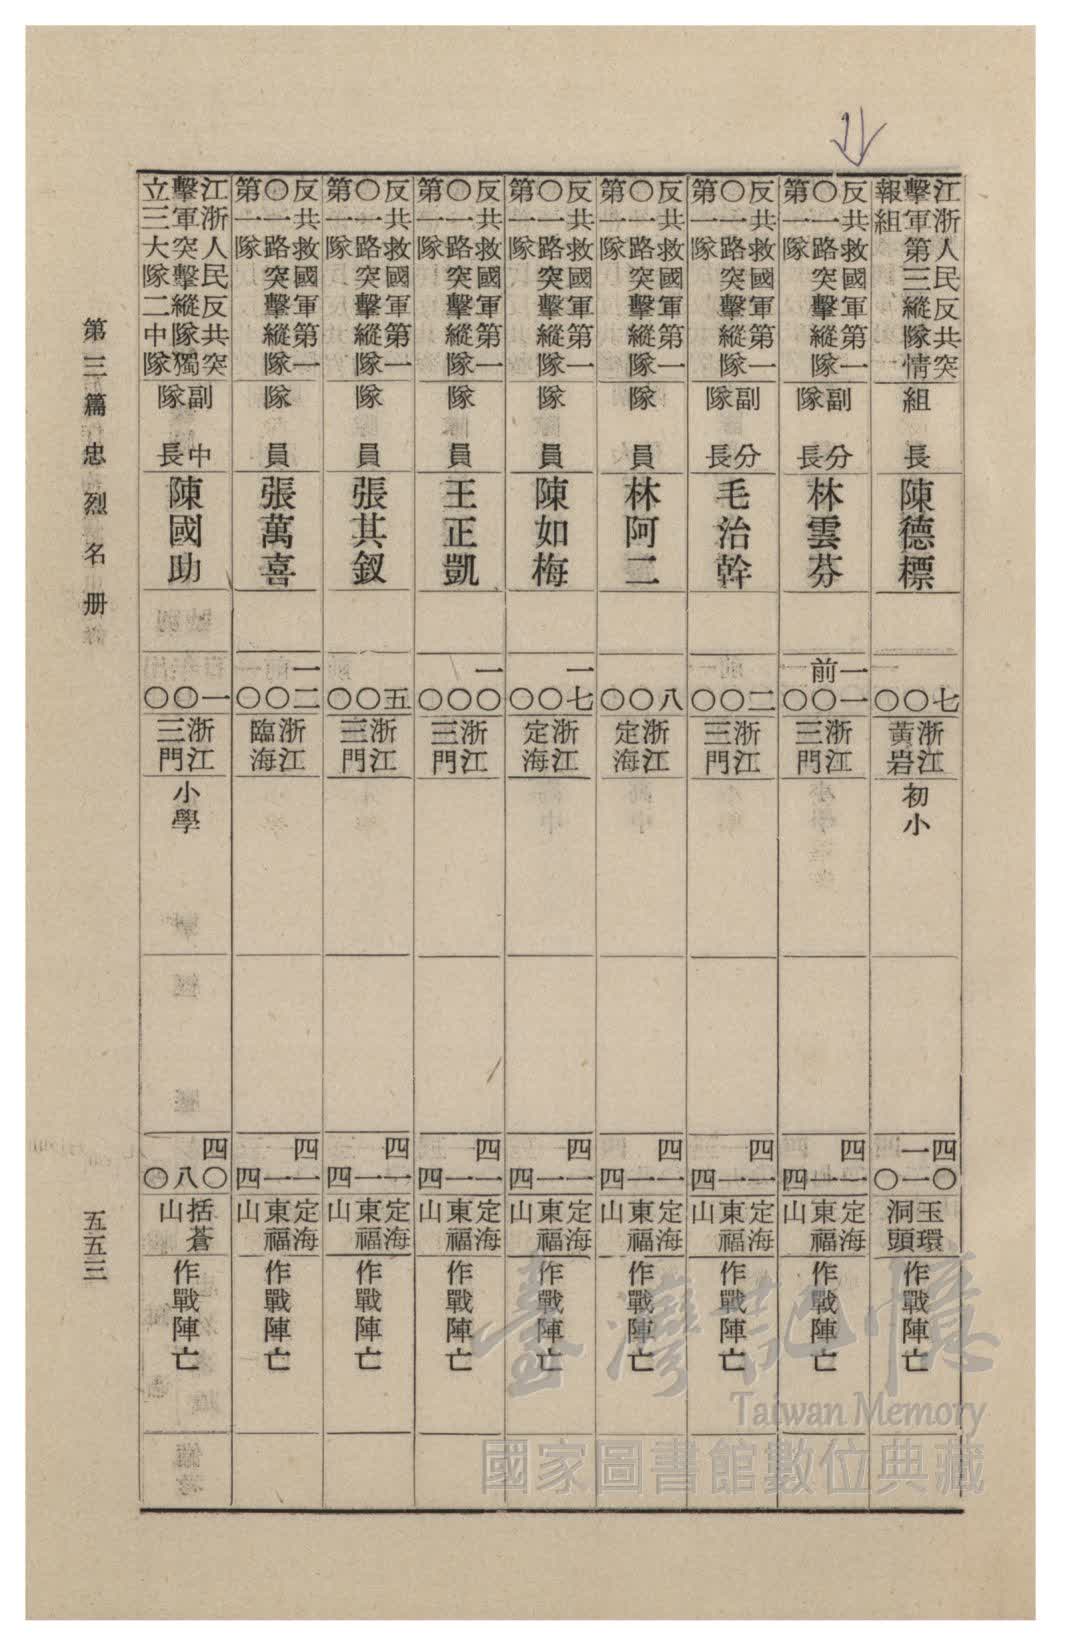 江浙人民反共突
擊軍第三縱隊情
報組
組長
陳德標
七〇〇
浙江
黃岩
初小
四〇
一一〇
玉環
洞頭
作戰陣亡
反共救國軍第一
〇一路突擊縱隊
第一隊
副分
隊長
林雲芬
一一
前〇〇
浙江
三門
四一
一四
定海
東福
山
作戰陣亡
反共救國軍第一
〇一路突擊縱隊
第一隊
副分
隊長
毛治幹
二〇〇
浙江
三門
四一
一四
定海
東福
山
作戰陣亡
反共救國軍第一
〇一路突擊縱隊
第一隊
隊員
林阿二
八〇〇
浙江
定海
四一
一四
定海
東福
山
作戰陣亡
反共救國軍第一
〇一路突擊縱隊
第一隊
隊員
陳如梅
一七
〇〇
浙江
定海
四一
一四
定海
東福
山
作戰陣亡
反共救國軍第一
〇一路突擊縱隊
第一隊
隊員
王正凱
一〇
〇〇
浙江
三門
四一
一四
定海
東福
山
作戰陣亡
反共救國軍第一
〇一路突擊縱隊
第一隊
隊員
張其釵
五〇〇
浙江
三門
四一
一四
定海
東福
山
作戰陣亡
反共救國軍第一
〇一路突擊縱隊
第一隊
隊員
張萬喜
一二
〇〇
浙江
臨海
四一
一四
定海
東福
山
作戰陣亡
江浙人民反共突
擊軍突擊縱隊獨
立三大隊二中隊
副中
隊長
陳國助
一〇〇
浙江
三門
小學
四〇
八〇
括蒼
山
作戰陣亡
第三篇 忠烈名冊
五五三
臺灣記憶
Taiwan Memory
國家圖書館數位典藏